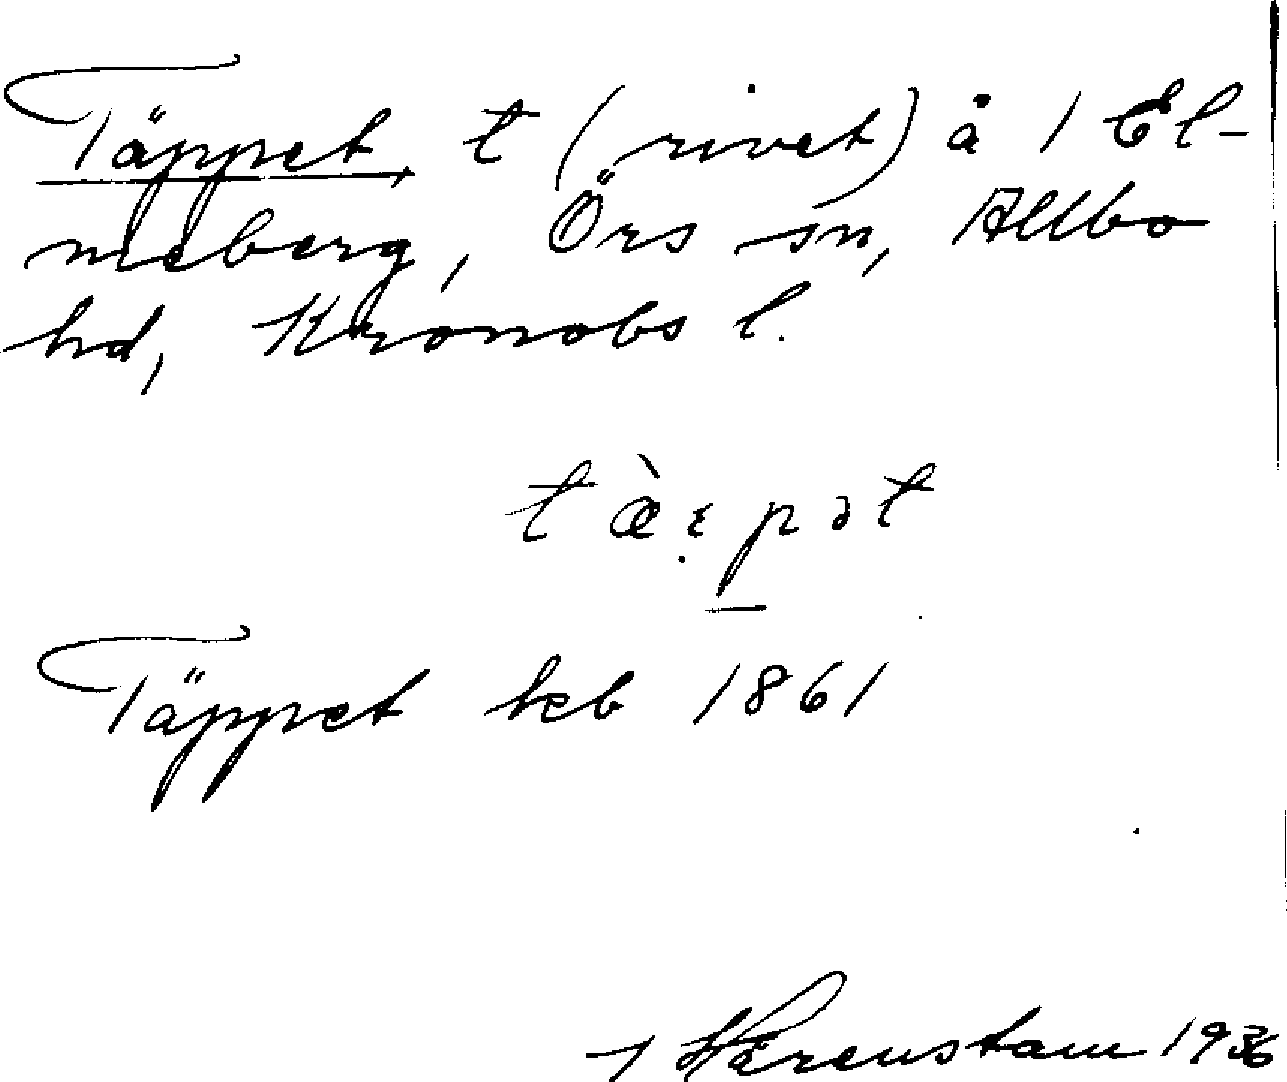 Täppet, t (rivet) å 1 El-
meberg, Örs sn, Allbo
hd, Kronobs l.
tæ̀ p ə t
Täppet heb 1861
Wærenstam 1936